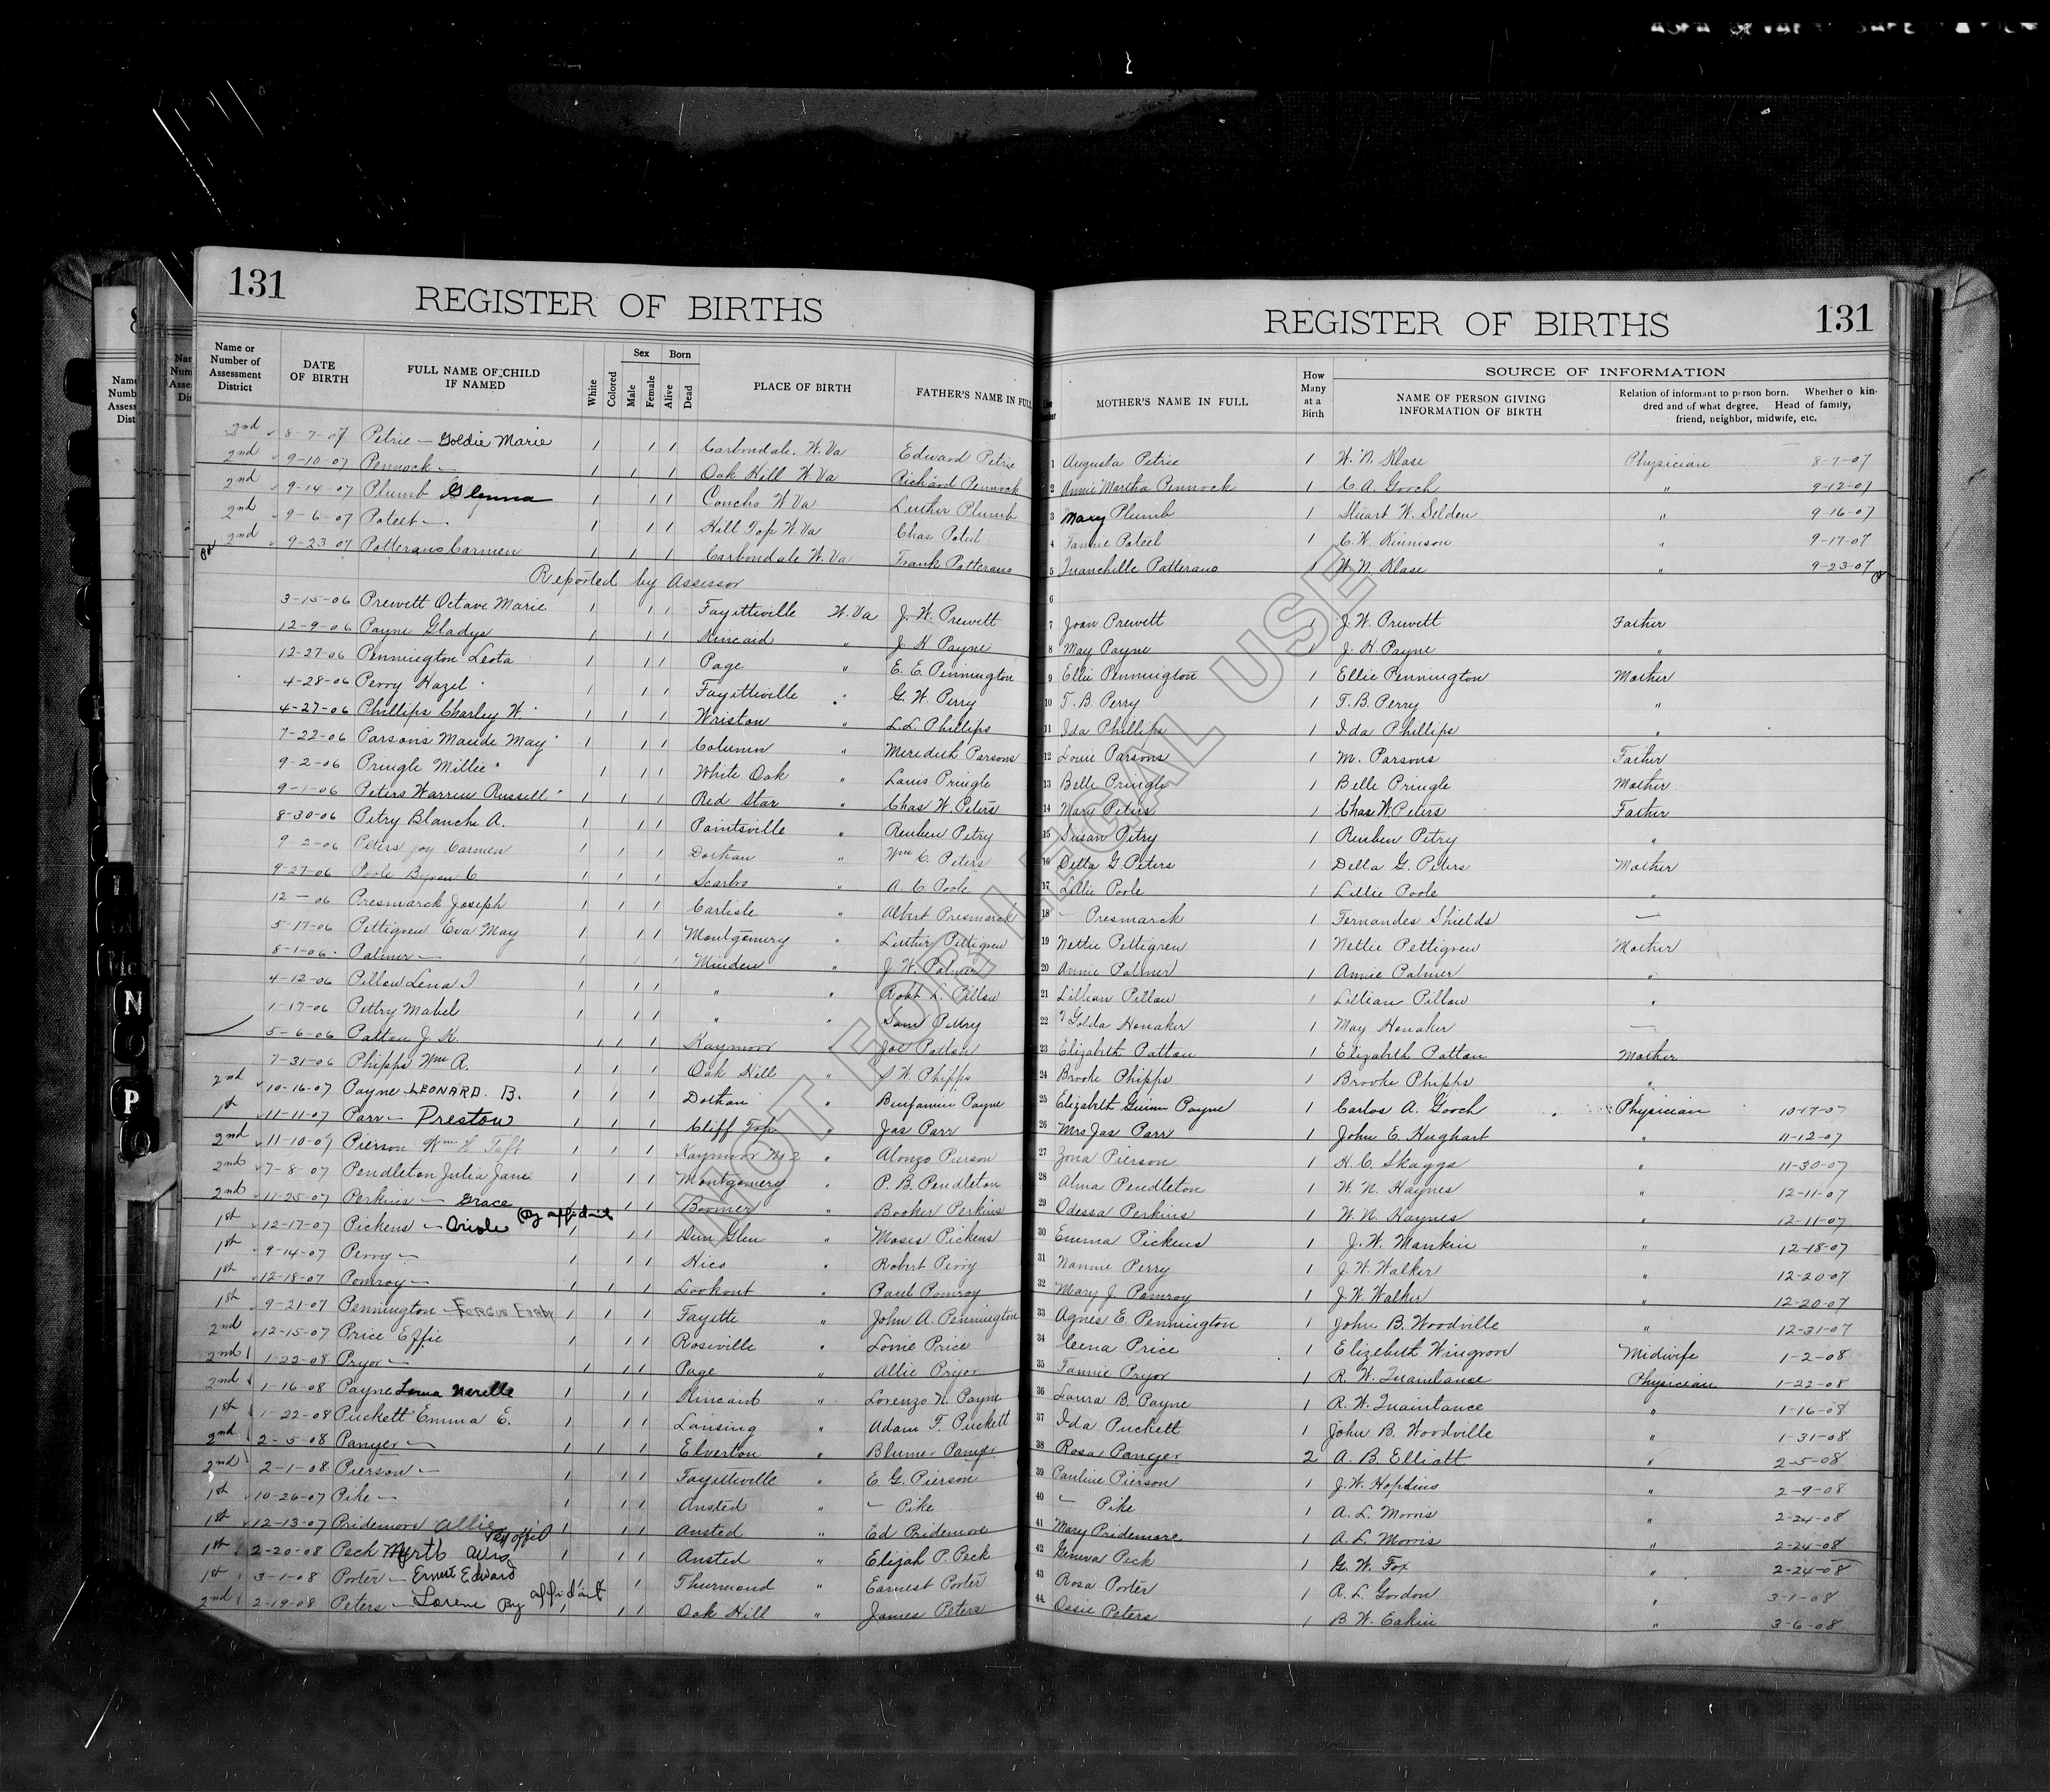 131
REGISTER OF BIRTHS
Name or Number of Assessment District
DATE OF BIRTH
FULL NAME OF CHILD IF NAMED
White
Colored
Sex
Male
Female
Born
Alive
Dead
PLACE OF BIRTH
FATHER'S NAME IN FULL
131
REGISTER OF BIRTHS
MOTHER'S NAME IN FULL
How Many at a Birth
SOURCE OF INFORMATION
NAME OF PERSON GIVING INFORMATION OF BIRTH
Relation of informant to person born. Whether o kindred and of what degree. Head of family, friend, neighbor, midwife, etc.
2nd 8-7-07 Petrie - Goldie Marie 1 1 1 Carbondale. W. Va Edward Petrie 1 Augusta Petrie 1 W. N. Klase Physician 8-7-07
2nd 9-10-07 Pennock - 1 1 1 Oak Hill W Va Richard Pennock 2 Annie Martha Pennock 1 C. A. Gooch " 9-12-07
2nd 9-14-07 Plumb Glenna 1 1 1 Concho W Va Luther Plumb 3 Mary Plumb 1 Stuart W. Selden " 9-16-07
2nd 9-6-07 Poteet - 1 1 1 Hill Top W. Va Chas Poteet 4 Fannie Poteet 1 C. W. Kinnison " 9-17-07
2nd 9-23-07 Potterano Carmen 1 1 1 Carbondale W. Va Frank Patterano 5 Patterano 1 W. N. Klase " 9-23-07
Reported by Assessor 6
3-15-06 Prewett Octave Marie 1 1 1 Fayetteville W. Va J. W. Prewett 7 Joan Prewett 1 J. W. Prewett Father
12-9-06 Payne Gladys 1 1 1 Kincaid " J. H Payne 8 May Payne 1 J. H. Payne "
12-27-06 Pennington Leota 1 1 1 Page " E. E. Pennington 9 Ellie Pennington 1 Ellie Pennington Mother
4-28-06 Perry Hazel 1 1 1 Fayetteville " G. W. Perry 10 T. B. Perry 1 T. B. Perry "
4-27-06 Phillips Charley W. 1 1 1 Wriston " L. L. Phillips 11 Ida Phillips 1 Ida Phillips "
7-22-06 Parsons Maude May 1 1 1 " Meredith Parsons 12 Louie Parsons 1 M. Parsons Father
9-2-06 Pringle Millie 1 1 1 White Oak " Louis Pringle 13 Belle Pringle 1 Belle Pringle Mother
9-1-06 Peters Warren Russell 1 1 1 Red Star " Chas W. Peters 14 Mary Peters 1 Chas W Peters Father
8-30-06 Petry Blanche A. 1 1 1 Paintsville " Reuben Petry 15 Susan Petry 1 Reuben Petry "
9 2-06 Peters Joy Carmen 1 1 1 Dothan " Wm C. Peters 16 Della G Peters 1 Della G. Peters Mother
9-27-06 Poole Byron C. 1 1 1 Scarbro " A. C. Poole 17 Lillie Poole 1 Lillie Poole "
12 - 06 Presmarck Joseph 1 1 1 Carlisle " Albert Presmarck 18 - Presmarck 1 Fernandes Shields -
5-17-06 Pettigrew Eva May 1 1 1 Montgomery " Luther Pettigrew 19 Nettie Pettigrew 1 Nettie Pettigrew Mother
8-1-06 Palmer - 1 1 1 Minden " J. W. Palmer 20 Annie Palmer 1 Annie Palmer "
4-12-06 Pillow Lena 1 1 1 " " Robt L. Pillow 21 Lillian Pillow 1 Lillian Pillow "
1-17-06 Pettry Mabel 1 1 1 " " Sam Pettry 22 ? Golda Honaker 1 May Honaker -
5-6-06 Patton J. K. 1 1 1 Kaymoor " Joe Patton 23 Elizabeth Patton 1 Elizabeth Patton Mother
7-31-06 Phipps Wm A. 1 1 1 Oak Hill " S. W. Phipps 24 Brooke Phipps 1 Brooke Phipps "
2nd 10-16-07 Payne LEONARD. B. 1 1 1 Dothan " Benjamin Payne 25 Elizabeth Guinn Payne 1 Carlos A. Gooch Physician 10-17-07
1st 11-11-07 Parr - Preston 1 1 1 Cliff Top " Jas Parr 26 Mrs Jas Parr 1 John E. Hughart " 11-12-07
2nd 11-10-07 Pierson Wm H Taft 1 1 1 Kaymoor No 2 " Alonzo Pierson 27 Zona Pierson 1 H. C. Skaggs " 11-30-07
2nd 7-8-07 Pendleton Julia Jane 1 1 1 Montgomery " P. B. Pendleton 28 Alma Pendleton 1 W. N. Haynes " 12-11-07
2nd 11-25-07 Perkins - Grace 1 1 Boomer " Booker Perkins 29 Odessa Perkins 1 W. N. Haynes " 12-11-07
1st 12-17-07 Pickens - By affidavit 1 1 1 Dun Glen " Moses Pickens 30 Emma Pickens 1 J. W. Mankin " 12-18-07
1st 9-14-07 Perry - 1 1 1 Hico " Robert Perry 31 Nannie Perry 1 J. W. Walker " 12-20-07
1st 12-18-07 Pomroy - 1 1 1 Lookout " Paul Pomroy 32 Mary J. Pomroy 1 J. W. Walker " 12-20-07
1st 9-21-07 Pennington - 1 1 1 Fayette " John A. Pennington 33 Agnes E. Pennington 1 John B. Woodville " 12-31-07
2nd 12-15-07 Price Effie 1 1 1 Roseville " Lonie Price 34 Cena Price 1 Elizebeth Wingrove Midwife 1-2-08
2nd 1-22-08 Pryor - 1 1 1 Page " Allie Pryor 35 Fannie Pryor 1 R. W. Quaintance Physician 1-22-08
2nd 1-16-08 Payne 1 1 1 Kincaid " Lorenzo N. Payne 36 Laura B. Payne 1 R. W. Quaintance " 1-16-08
1st 1-22-08 Puckett Emma E. 1 1 1 Lansing " Adam F. Puckett 37 Ida Puckett 1 John B. Woodville " 1-31-08
2nd 2-5-08 Panger - 1 1 1 Elverton " Blumer Panger 38 Rosa Panger 2 A. B. Elliott " 2-5-08
2nd 2-1-08 Pierson - 1 1 1 Fayetteville " E. G. Pierson 39 Pauline Pierson 1 J. W. Hopkins " 2-9-08
1st 10-26-07 Pike - 1 1 1 Ansted " - Pike 40 - Pike 1 A. L. Morris " 2-24-08
1st 12-13-07 Pridemore Allie 1 1 1 Ansted " Ed Pridemore 41 Mary Pridemore 1 A. L. Morris " 2-24-08
1st 2-20-08 Peck Myrtle 1 1 1 Ansted " Elijah P. Peck 42 Geneva Peck 1 G. W. Fox " 2-24-08
1st 3-1-08 Porter - Ernest Edward 1 Thurmond " Earnest Porter 43 Rosa Porter 1 R. L. Gordon " 3-1-08
2nd 2-19-08 Peters - Lorene By affidavit 1 1 1 Oak Hill " James Peters 44 Ossie Peters 1 B. W. Eakin " 3-6-08
NOT FOR LEGAL USE
Mc
N
O
P
Q